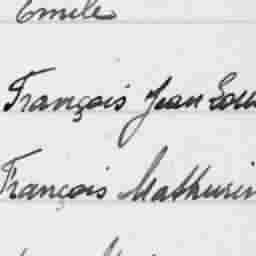 Emile
François Jean Lou
François Mathurin